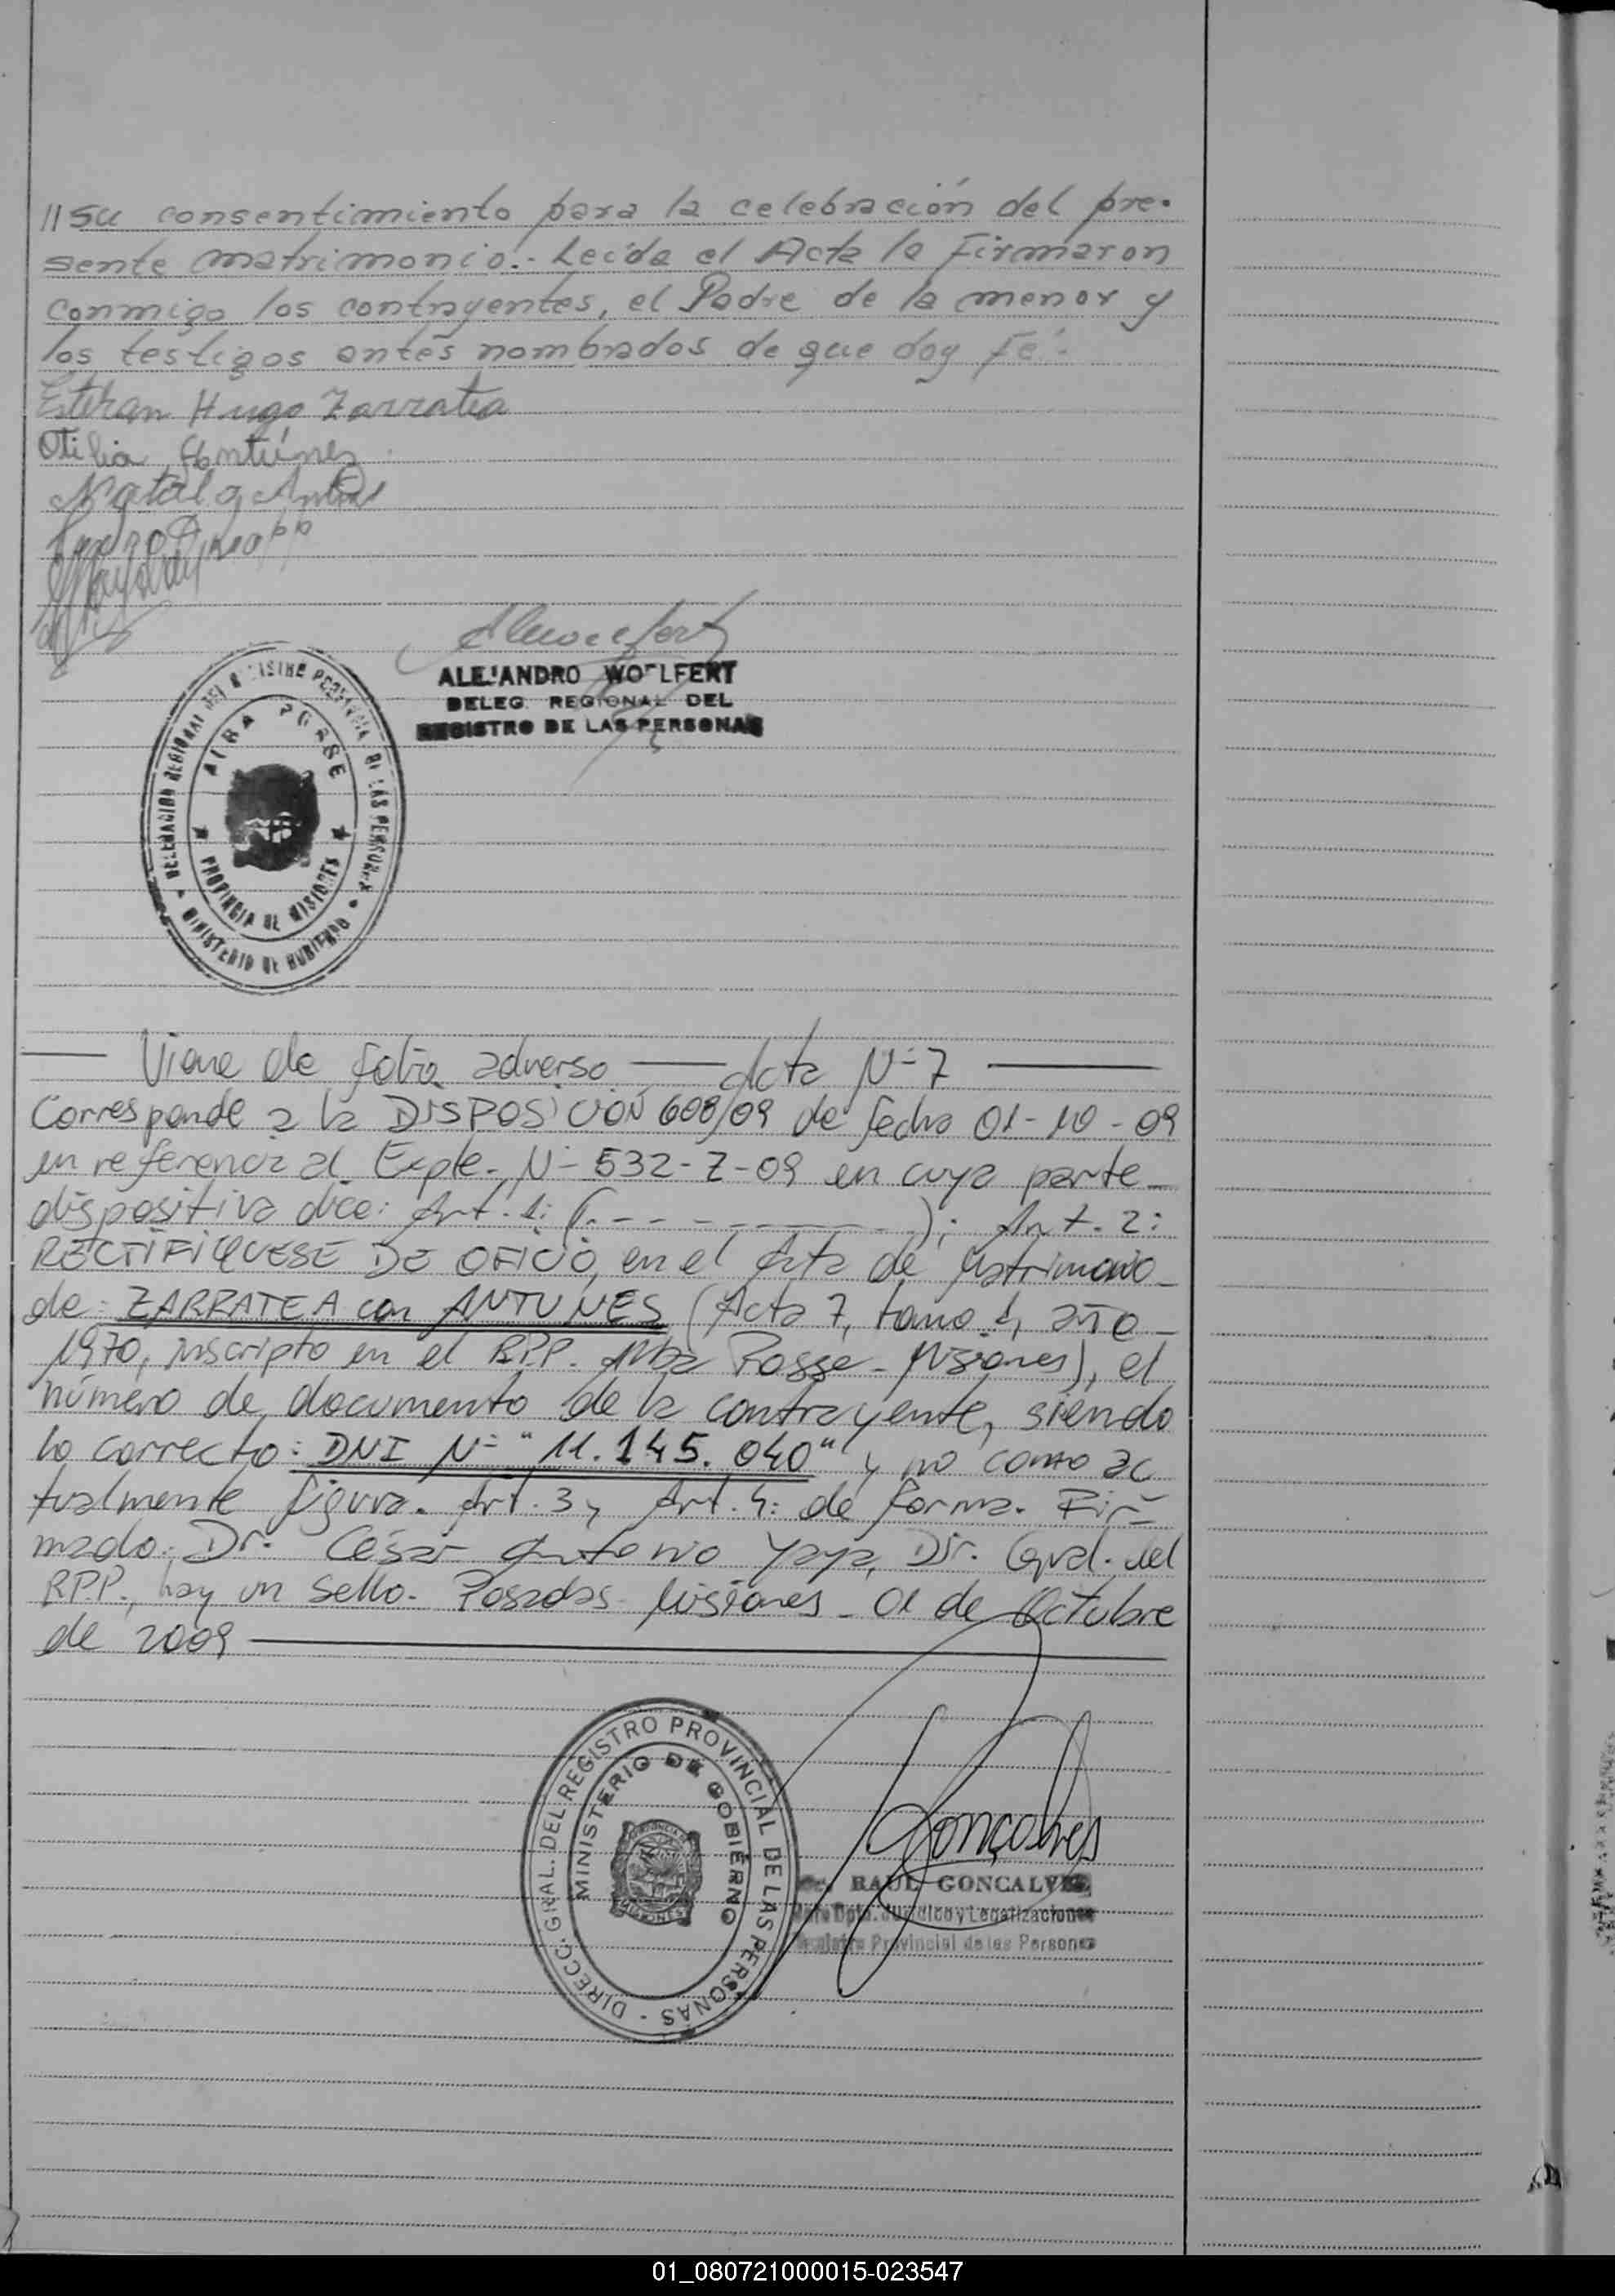 //su consentimiento para la celebración del pre-
sente matrimonio.- Leída el Acta la Firmaron
conmigo los contrayentes, el Padre de la menor y
los testigos antes nombrados de que doy Fé.-
Esteban Hugo Zarratea
Otilia Antúnes
ALEJANDRO WOELFERT
DELEG. REGIONAL DEL
REGISTRO DE LAS PERSONAS
DELEGACION REGIONAL DEL REGISTRO PROVINCIAL DE LAS PERSONAS
MINISTERIO DE GOBIERNO
ALBA POSSE
PROVINCIA DE MISIONES
Viene de folio adverso — Acta Nº 7
Corresponde a la DISPOSICIÓN 608/09 de fecha 01-10-09
en referencia al Expte. Nº 532-Z-09 en cuya parte
dispositiva dice: Art. 1: (----------); Art. 2:
RECTIFIQUESE DE OFICIO, en el Acta de Matrimonio
de: ZARRATEA con ANTUNES (Acta 7, tomo 1, año
1970, inscripto en el RPP. Alba Posse - Misiones), el
número de documento de la contrayente, siendo
lo correcto: DNI Nº "11.145.040" y no como ac
tualmente figura. Art. 3 y Art. 4: de forma. Fir-
mado: Dr. César Antonio Yaya, Dir. Gral. del
RPP., hay un sello. Posadas Misiones - 01 de Octubre
de 2009
DIRECC. GRAL. DEL REGISTRO PROVINCIAL DE LAS PERSONAS -
MINISTERIO DE GOBIERNO
MISIONES
Goncalves
RAUL GONCALVES
Jefe Dpto. Jurídico y Legalizaciones
Registro Provincial de las Personas
01_080721000015-023547